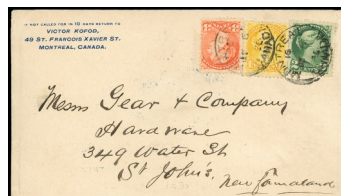 IF NOT CALLED FOR IN 10 DAYS RETURN TO
VICTOR KOFOD,
49 ST. FRANCOIS XAVIER ST.
MONTREAL, CANADA.
MONTREAL
Messrs Gear & Company
Hardware
349 Water St
St John's.
Newfoundland